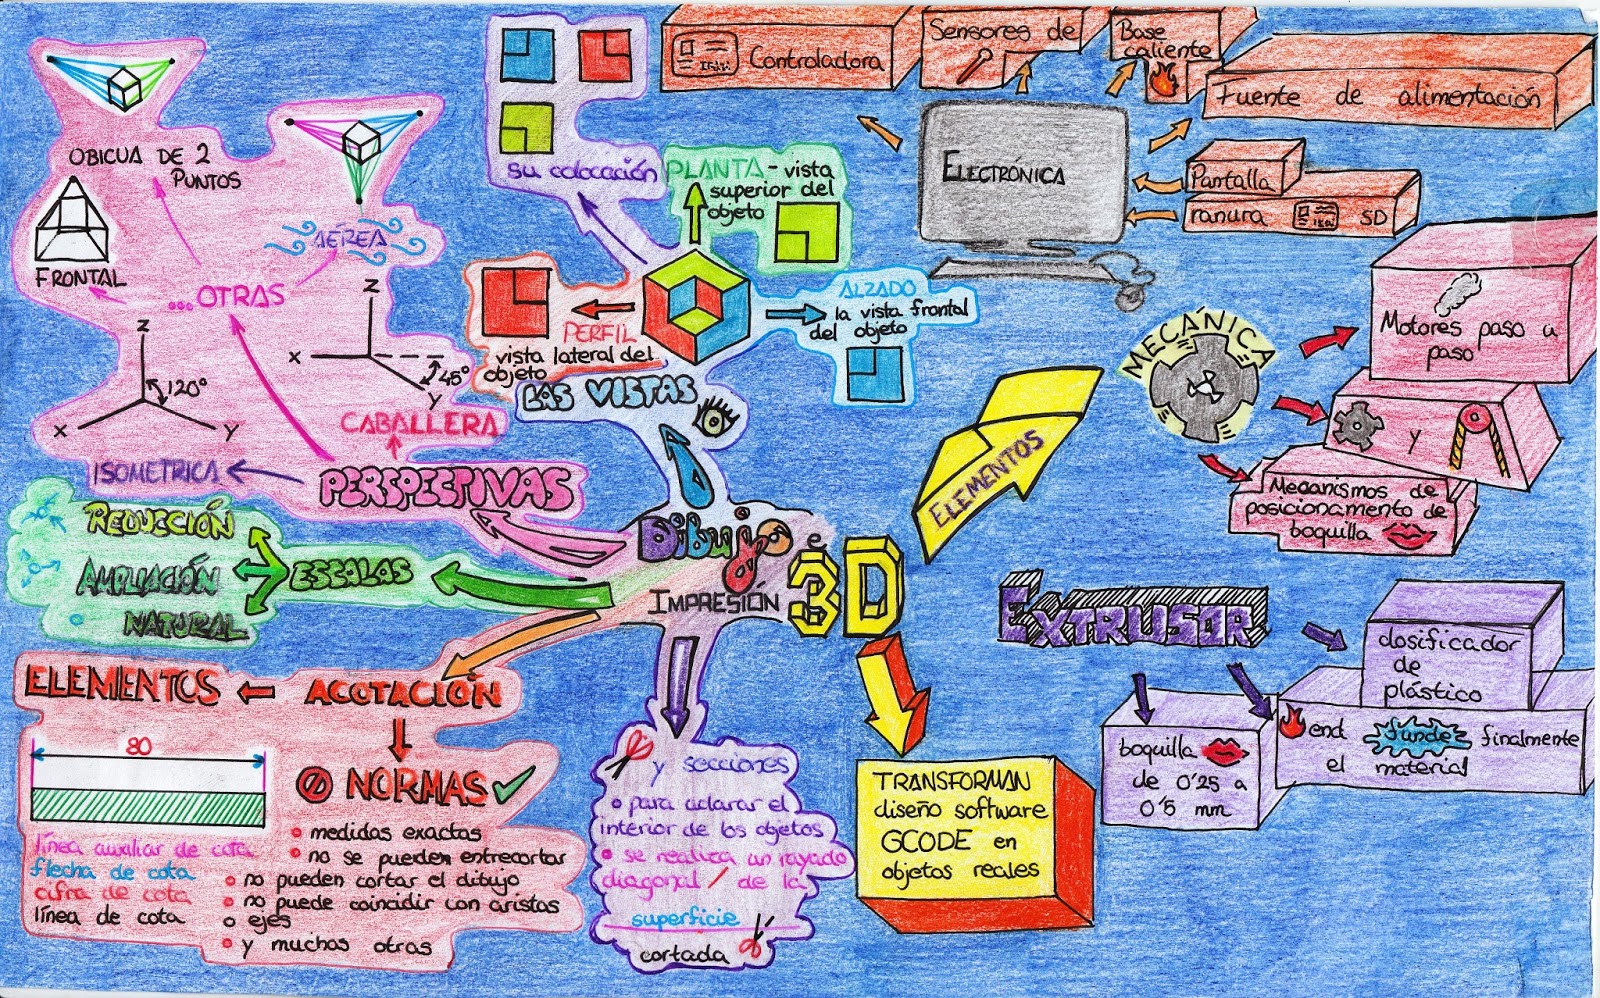 OBICUA DE 2
PUNTOS
FRONTAL
AÉREA
...OTRAS
Z
120°
X
Y
Z
X
45°
Y
CABALLERA
ISOMETRICA
PERSPECTIVAS
su colocación
PLANTA - vista
superior del
objeto
PERFIL
vista lateral del
objeto
ALZADO
la vista frontal
del objeto
LAS VISTAS
REDUCCIÓN
AMPLIACIÓN
NATURAL
ESCALAS
Dibujo e
IMPRESIÓN 3D
ELEMENTOS
ACOTACIÓN
80
línea auxiliar de cota
flecha de cota
cifra de cota
línea de cota
NORMAS
medidas exactas
no se pueden entrecortar
no pueden cortar el dibujo
no puede coincidir con aristas
o ejes
y muchas otras
y secciones
para aclarar el
interior de los objetos
se realiza un rayado
diagonal / de la
superficie
cortada
TRANSFORMAN
diseño software
GCODE en
objetos reales
ELEMENTOS
ELECTRÓNICA
Controladora
Sensores de
Base
caliente
Fuente de alimentación
Pantalla
ranura SD
MECÁNICA
Motores paso a
paso
y
Mecanismos de
posicionamento de
boquilla
EXTRUSOR
dosificador
de
plástico
boquilla
de 0'25 a
0'5 mm
end funde finalmente
el material